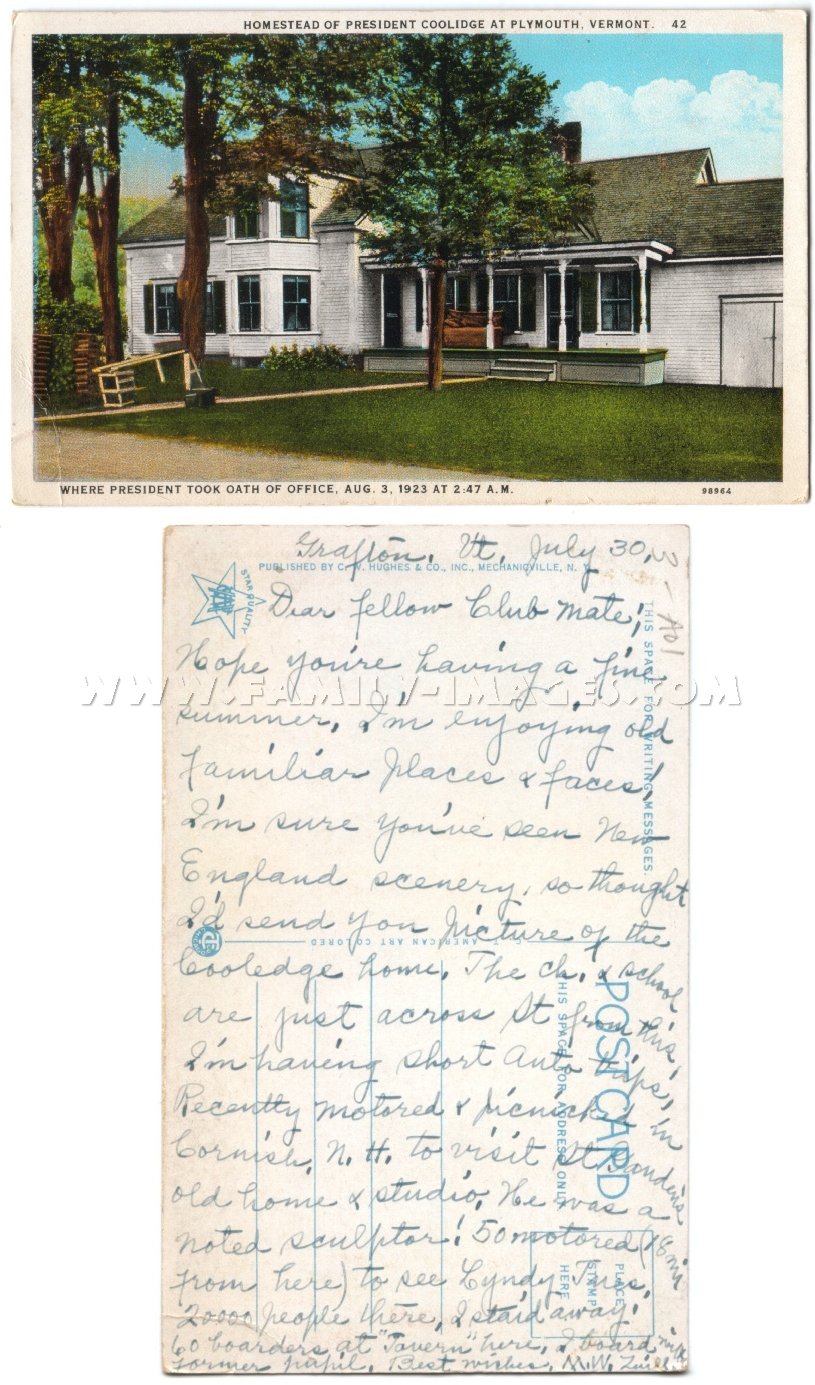 HOMESTEAD OF PRESIDENT COOLIDGE AT PLYMOUTH, VERMONT. 42
WHERE PRESIDENT TOOK OATH OF OFFICE, AUG. 3, 1923 AT 2:47 A.M.
98964
Grafton, Vt, July 30,
3-A01
PUBLISHED BY C. W. HUGHES & CO., INC., MECHANICVILLE, N. Y.
STAR QUALITY
Dear fellow Club Mate;
Hope you're having a fine
WWW.FAMILY-IMAGES.COM
summer. I'm enjoying old
familiar places & faces!
I'm sure you've seen New
England scenery, so thought
I'd send you picture of the
Cooledge home. The ch. & school
are just across St from this.
I'm having short auto trips,
Recently motored & picnicked in
Cornish, N. H. to visit St Gaudens
old home & studio. He was a
noted sculptor! 50 motored (18 mi
from here) to see
20000 people there, I staid away!
60 boarders at "Tavern" here, I board
former pupil. Best wishes, M. W.
THIS SPACE FOR WRITING MESSAGES.
AMERICAN ART COLORED
POST CARD
THIS SPACE FOR ADDRESS ONLY
PLACE
STAMP
HERE